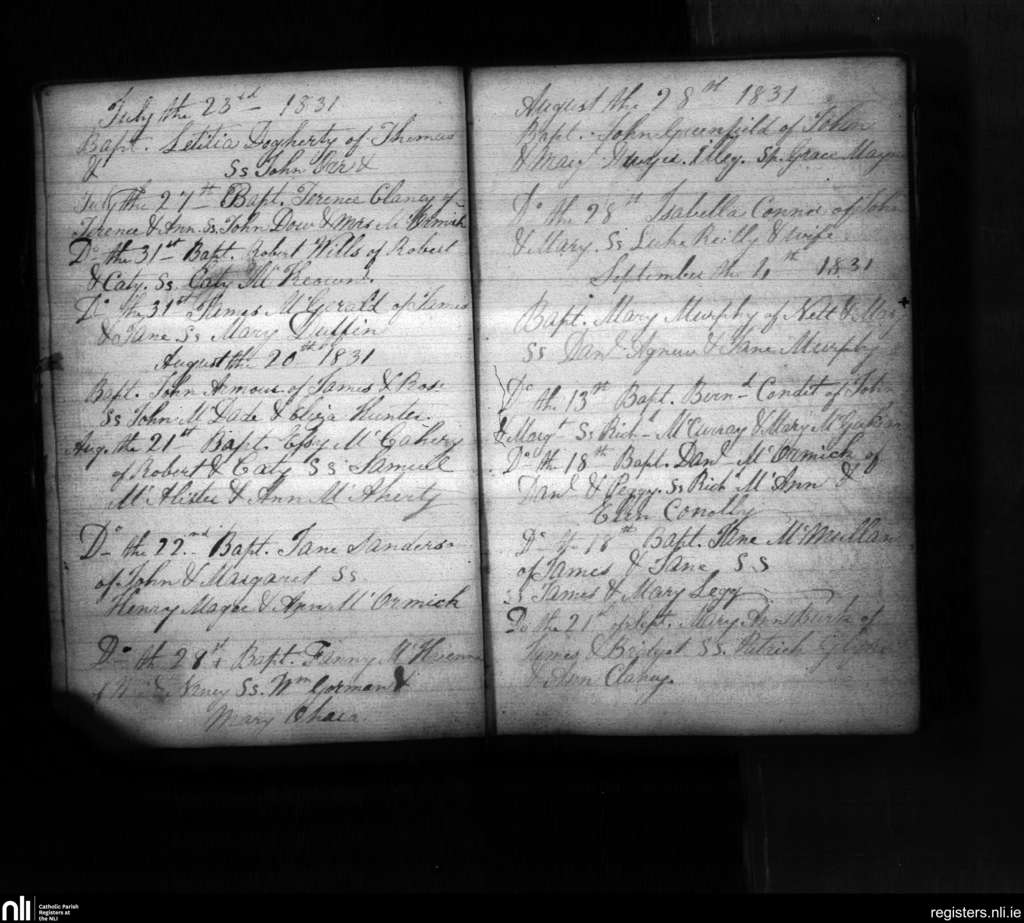 July the 23rd 1831
Bapt. Letitia Dogherty of Thomas
& Ss John Orr &
July the 27th Bapt. Terence Clancy of
Terence & Ann. Ss. John Dow & Mrs McOrmick
Do the 31st Bapt. Robert Wills of Robert
& Caty. Ss. Caty McKeown.
Do the 31st James McGerald of James
& Jane Ss Mary Duffin
August the 20th 1831
Bapt. John Armour of James & Rose
Ss John McDade & Eliza Hunter.
Aug. the 21st Bapt. Epsy McCahery
of Robert & Caty Ss Samuel
McAlister & Ann McAherty
Do the 22nd Bapt. Jane Sanders
of John & Margaret Ss.
Henry Magee & Ann McOrmick
Do the 28th Bapt. Fanny
Nancy Ss. Wm Gorman &
Mary Ohara.
August the 28th 1831
Bapt. John Greenfield of John
& Marg. Illeg. Sp. Grace Magee
Do the 28th Isabella Connor of John
& Mary. Ss Luke Reilly & wife
September the 11th 1831
Bapt. Mary Murphy of &
Ss Danl Agnew & Jane Murphy
Do th. 13th Bapt. Bern-d Condit of John
& Margt Ss Richd McCurray & Mary
Do the 18th Bapt. Danl McOrmick of
Danl & Peggy. Ss Richd McAnn &
Ellen Conolly
Do 18th Bapt. Jane McMullan
of James & Jane SS
Ss James & Mary Legg
Do the 21st of Sept. Mary Ann Burk of
James & Bridget SS. Patrick
& Ann Clahey.
nli
Catholic Parish
Registers at
the NLI
registers.nli.ie